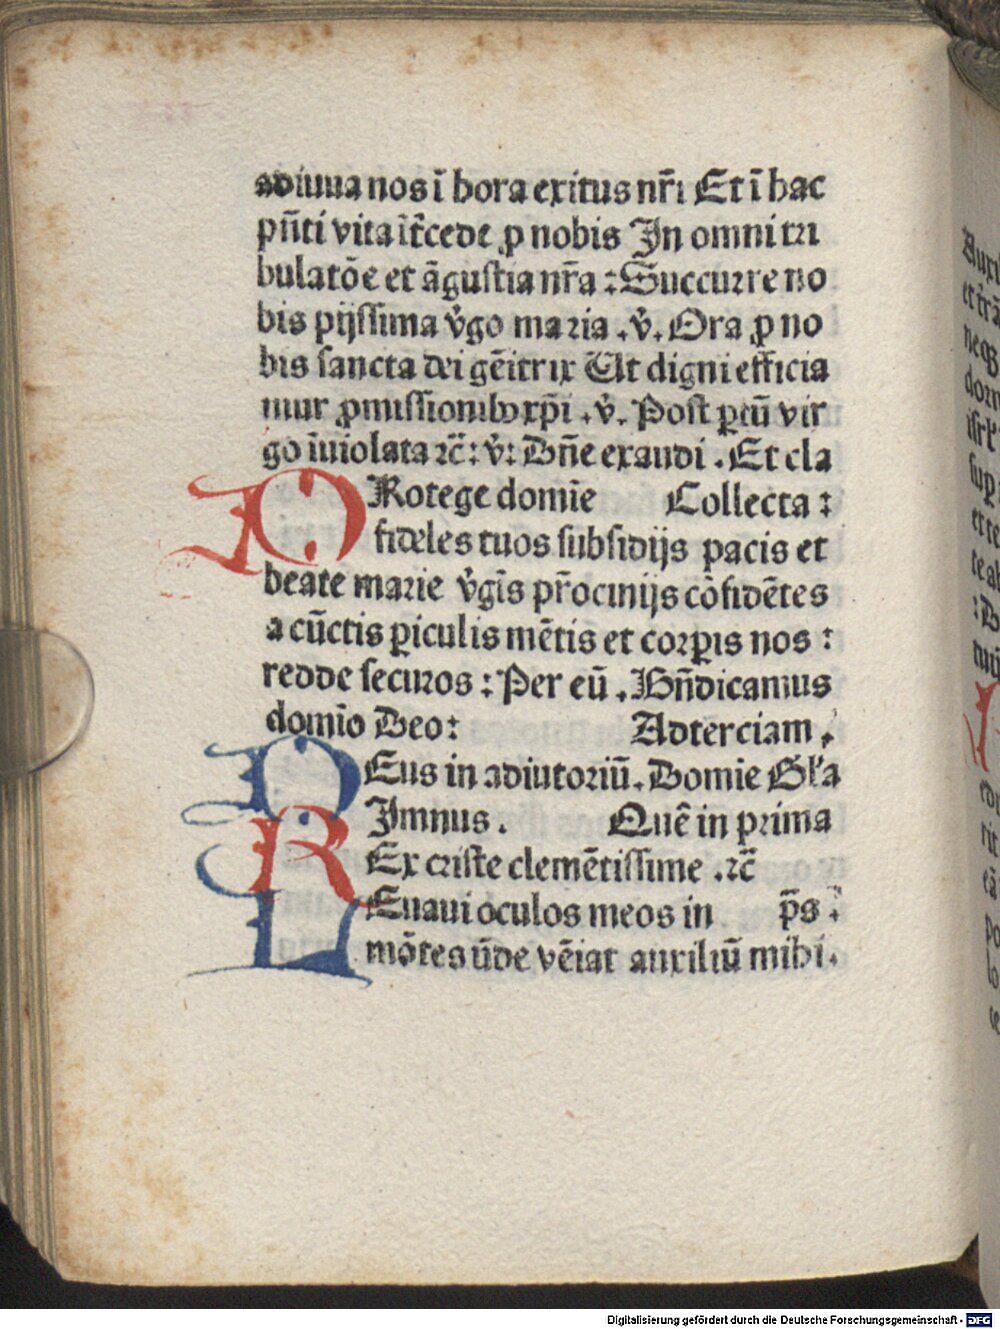 adiuua nos ī hora exitus nr̄i Et ī hac
pn̄ti vita īt̄cede ꝓ nobis In omni tri
bulatōe et āgustia nr̄a : Succurre no
bis pijssima v̄go maria . v̄. Ora ꝓ no
bis sancta dei gēitrix Ut digni efficia
mur ꝓmissionibꝰ xp̄i . v̄. Post ꝑtū vir
go īuiolata ⁊c̄ : v̄: Dn̄e exaudi . Et cla
PRotege domīe Collecta :
fideles tuos subsidijs pacis et
beate marie v̄gīs pr̄ocinijs cōfidētes
a cūctis ꝑiculis mētis et corꝑis nos :
redde securos : Per eū . Bn̄dicamus
domīo Deo: Ad terciam .
DEus in adiutoriū . Domīe Gl'a
Imnus . Quē in prima
REx criste clemētissime . ⁊c̄
LEuaui oculos meos in p̄s .
mōtes ūde vēiat auxiliū mihi .
Digitalisierung gefördert durch die Deutsche Forschungsgemeinschaft - DFG